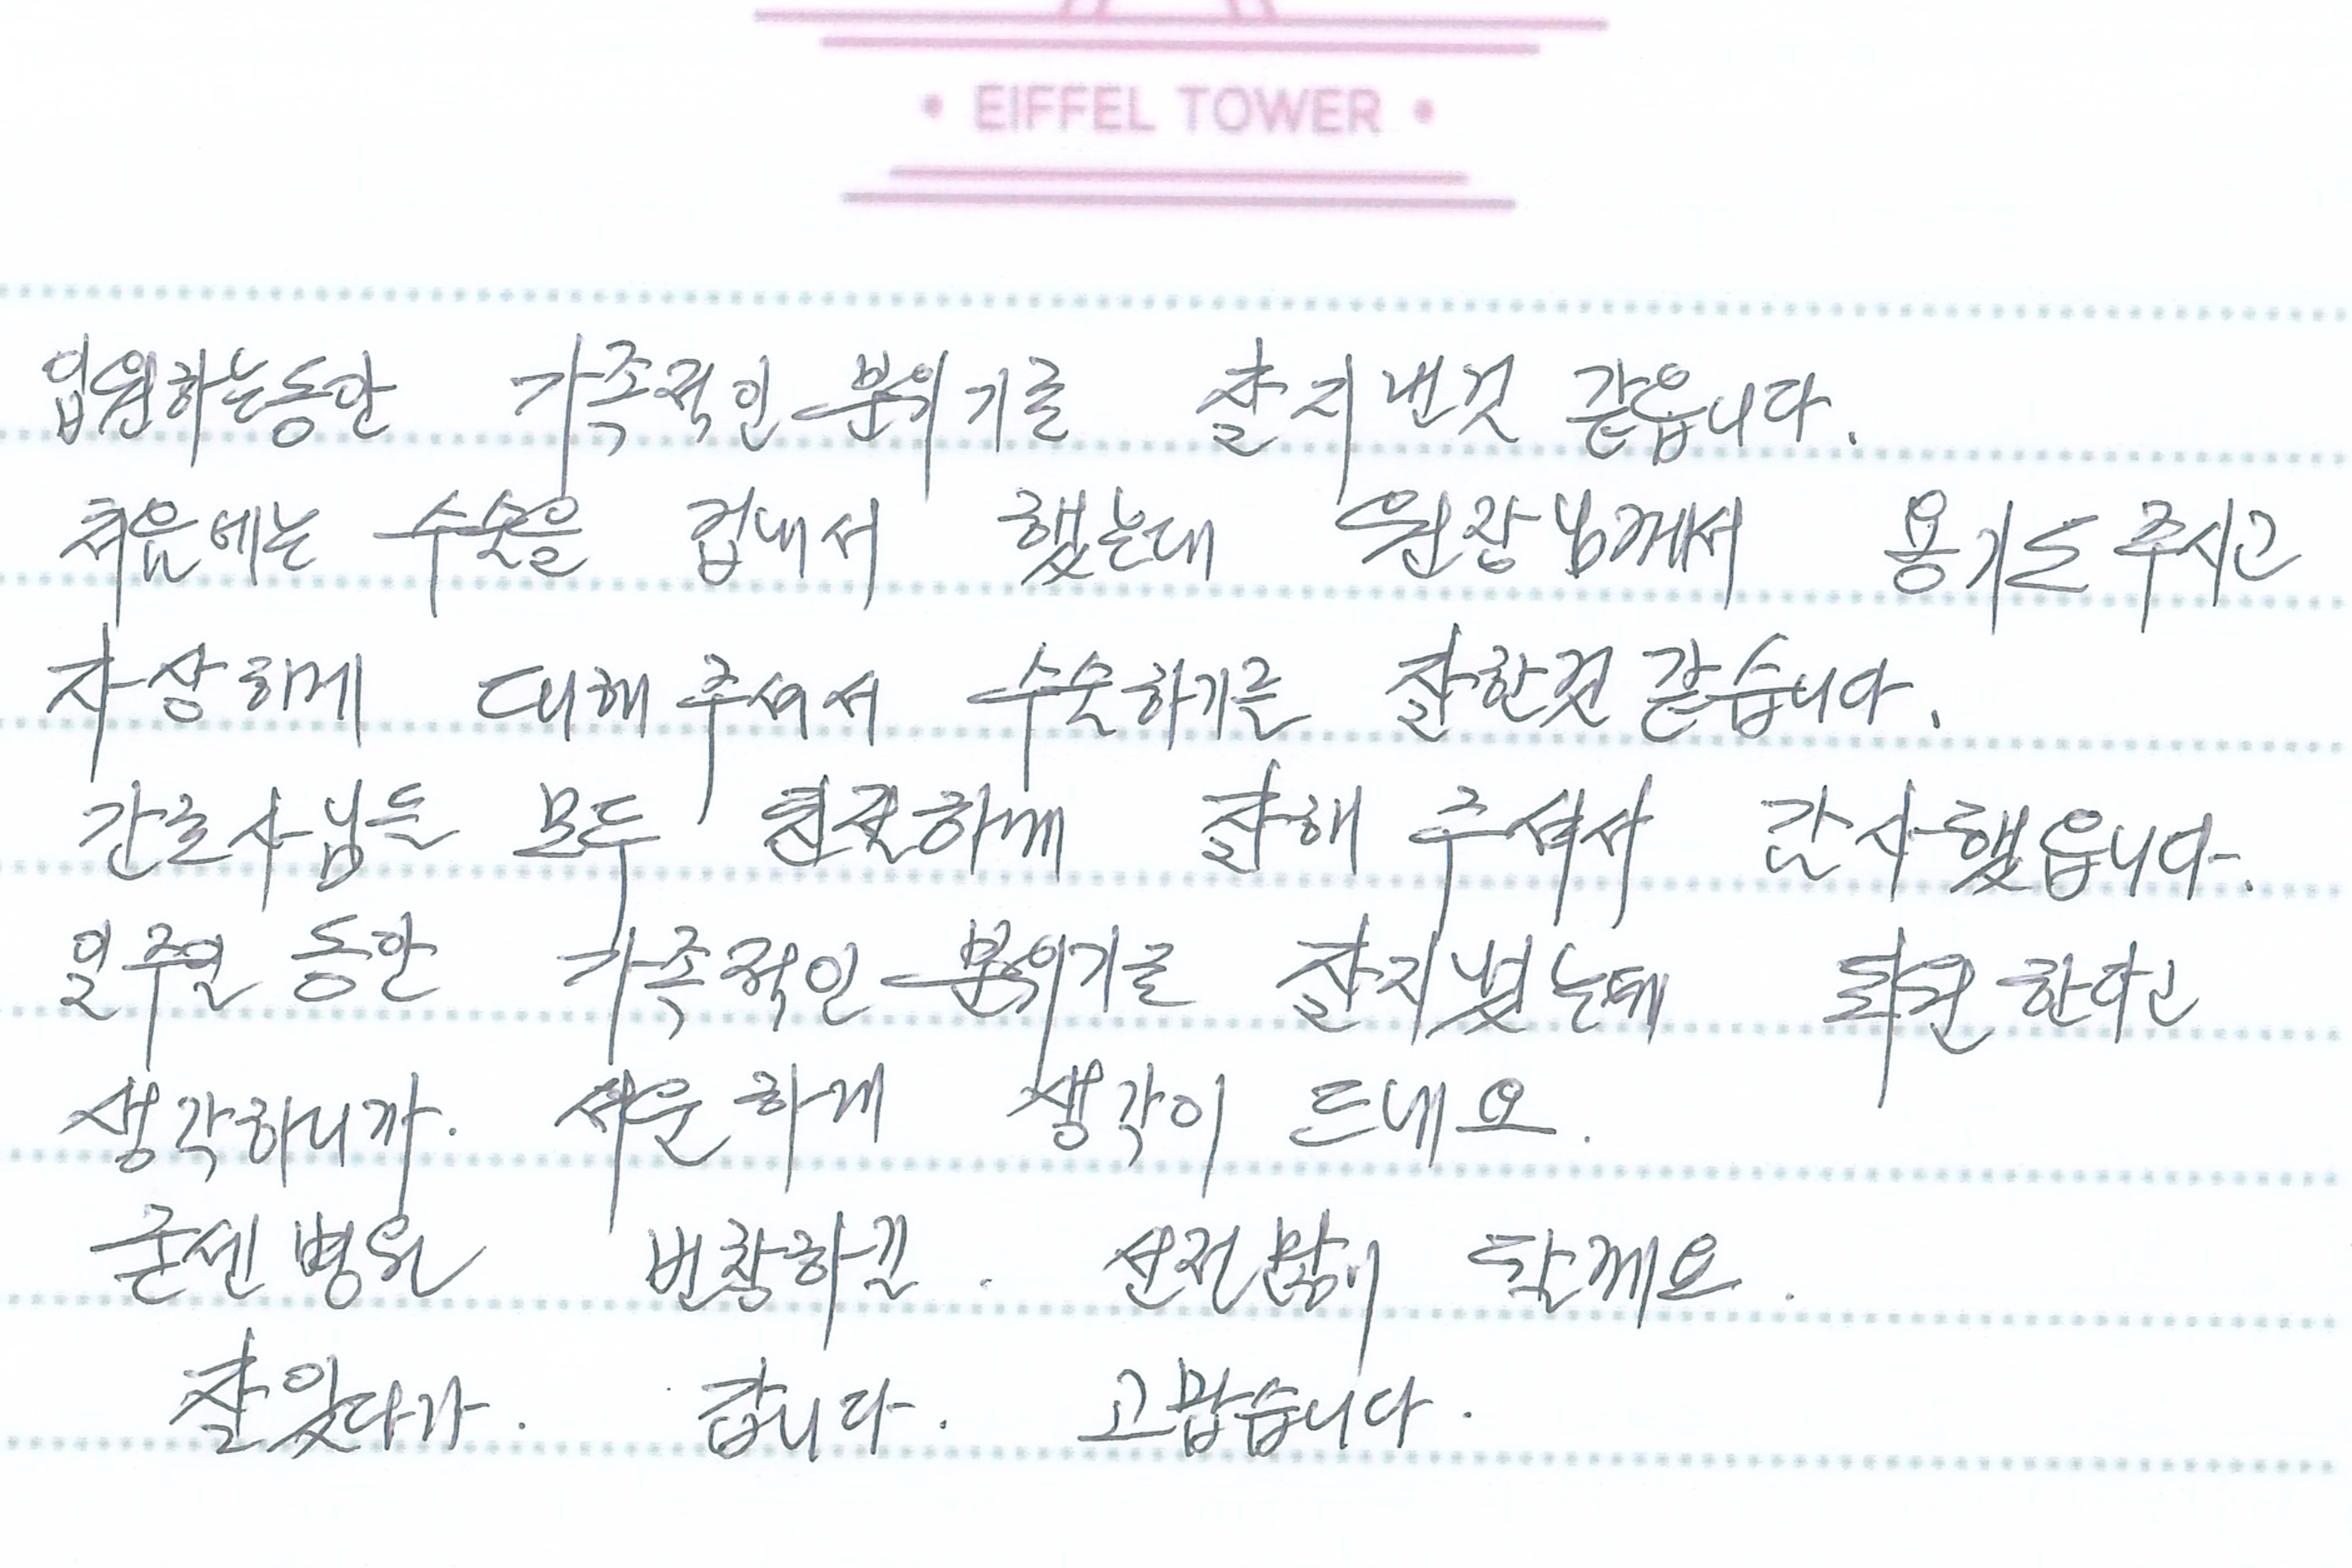 • EIFFEL TOWER •
입원하는동안 가족적인 분위기로 잘 지낸것 같읍니다.
처음에는 수술을 겁내서 했는대 원장님께서 용기도 주시고
자상하게 대해 주셔서 수술하기를 잘한것 같습니다.
간호사님들 모두 친절하게 잘해 주셔서 감사했읍니다.
일주일 동안 가족적인 분위기로 잘지냈는데 퇴원 한다고
생각하니까. 서운하게 생각이 드네요.
굳센병원 번창하길. 선전많이 할께요.
잘있다가. 갑니다. 고맙습니다.